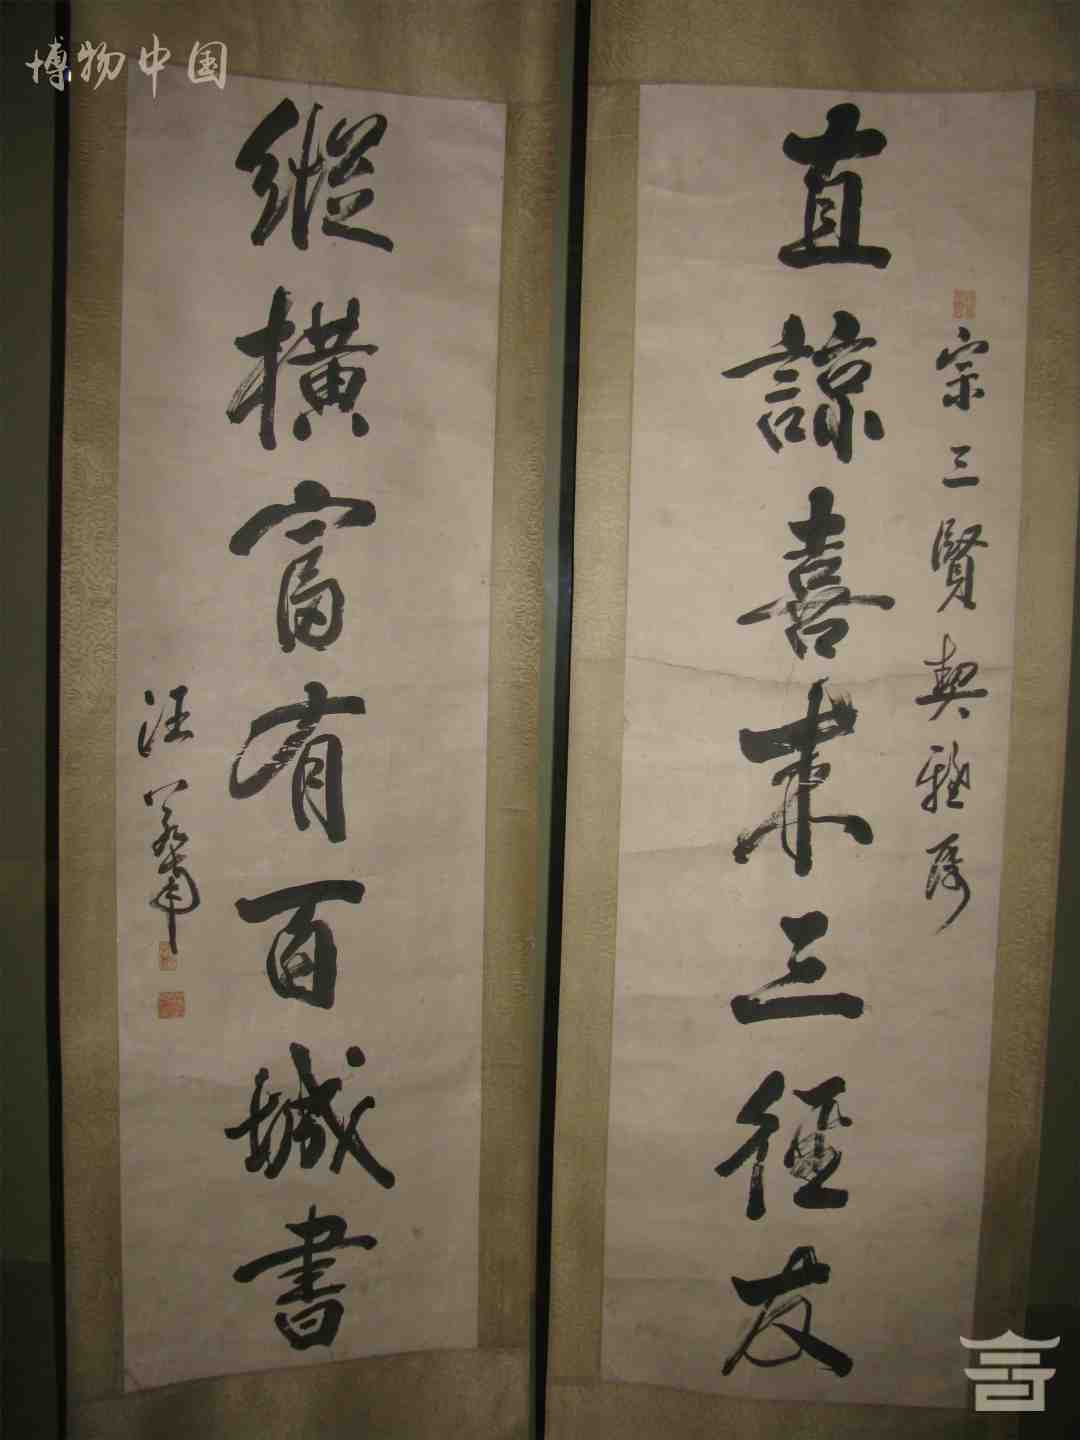 博物中国
宗三賢契雅属
直諒喜来三徑友
縱橫富有百城書
汪